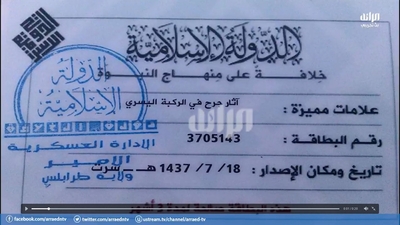 الرائد
الدولة الإسلامية
خلافة على منهاج النبوة
علامات مميزة : آثار جرح في الركبة اليسرى
رقم البطاقة : 3705143
تاريخ ومكان الإصدار : 18 / 7 / 1437 هـ - سرت
الدولة
الإسلامية
الإدارة العسكرية
الأمير
ولاية طرابلس
هذه البطاقة صالحة لمدة 3 أشهر
facebook.com/arraedntv
twitter.com/arraedntv
ustream.tv/channel/arraed-tv